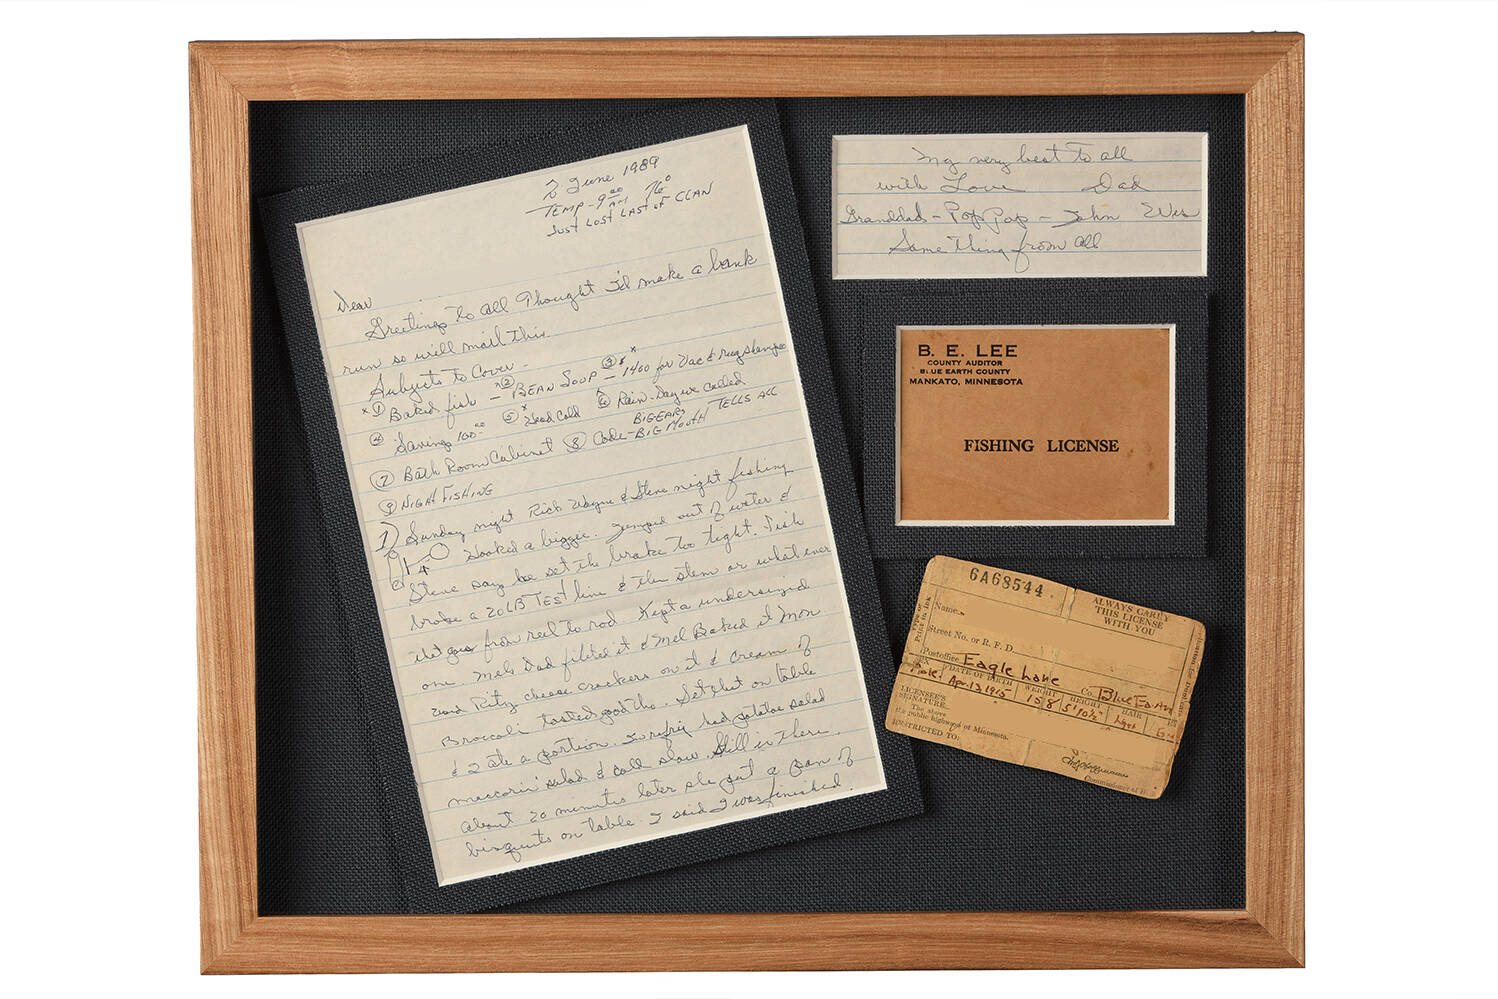 2 June 1989
TEMP - 9 00 AM 76°
JUST LOST LAST of CLAN
Dear
Greetings to all Thought I'd make a bank
run so will mail this.
Subjects to Cover -
x ① Baked fish - x ② BEAN SOUP - ③ $ x 1400 for Vac & rug shampoo
④ Savings 100 00 ⑤ x Head Cold ⑥ Rain - Wayne called
⑦ Bath Room Cabinet ⑧ Code - BIG EARS BIG MOUTH TELLS ALL
⑨ NIGHT FISHING
1) Sunday night Rick Wayne & Steve night fishing
Hooked a biggie. Jumped out of water &
Steve says he set the brake too tight. Fish
broke a 20LB TEST line & the stem or what ever
that goes from reel to rod. Kept a undersized
one. Mels Dad fileted it & Mel Baked it Mon
Ritz cheese crackers on it & Cream of
Broccoli tasted good tho. Set that on table
& I ate a portion. In refrig had potatoe salad
maccorin salad & coll slaw. Still in there.
about 20 minutes later she put a pan of
bisquits on table. I said I was finished.
My very best to all
with Love Dad
Granddad - PopPop - John Wes
Same thing from all
B. E. LEE
COUNTY AUDITOR
BLUE EARTH COUNTY
MANKATO, MINNESOTA
FISHING LICENSE
6A68544
ALWAYS CARRY
THIS LICENSE
WITH YOU
Type or
Print in Ink
Name
Street No. or R. F. D.
Postoffice Eagle Lake Co. Blue Earth
SEX DATE OF BIRTH WEIGHT HEIGHT HAIR
Male Apr. 13 1915 158 5'10½"
LICENSEE'S
SIGNATURE
The above
the public highways of Minnesota.
RESTRICTED TO:
Commissioner of